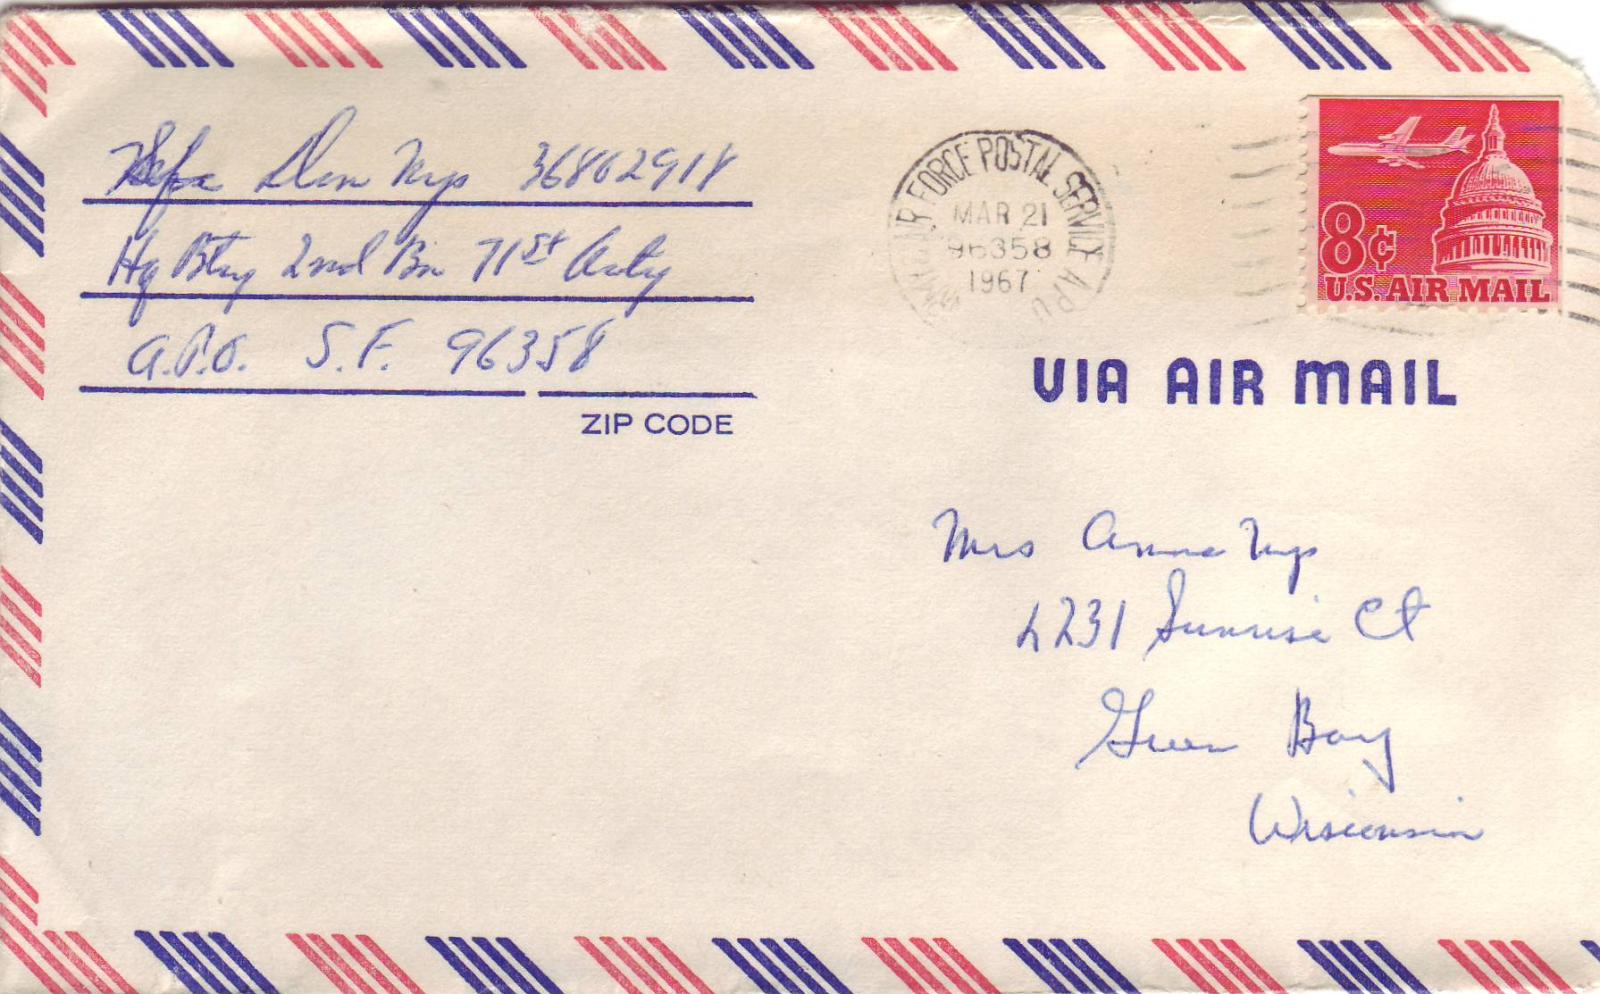 Don Nys 36802918
Hq Btry 2nd Bn 71st Arty
A.P.O. S.F. 96358
ZIP CODE
AIR FORCE POSTAL SERVICE
MAR 21
96358
1967
8¢
U.S. AIR MAIL
VIA AIR MAIL
Mrs Anna Nys
1231 Sunrise Ct
Green Bay
Wisconsin